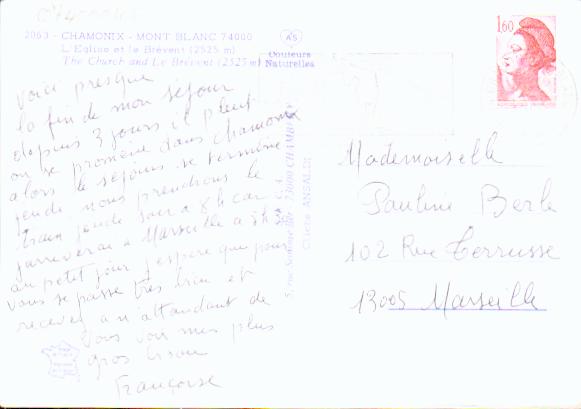 2063 - CHAMONIX - MONT BLANC 74000
L'Eglise et le Brévent (2525 m)
The Church and Le Brévent (2525 m)
Couleurs
Naturelles
1,60
Voici presque
la fin de mon séjour
depuis 3 jours il pleut
on se promène dans chamonix
alors le séjours se termine
jeudi nous prendrons le
train jeudi soir a 8h car
j'arriverai a Marseille a 8h
au petit jour j'espere que pour
vous se passe très bien et
recevez an attandant de
vous voir mes plus
gros bisou
Françoise
Mademoiselle
Pauline Berle
102 Rue Terrusse
13005 Marseille
73000 CHAMBERY
Cliché ANSALDI